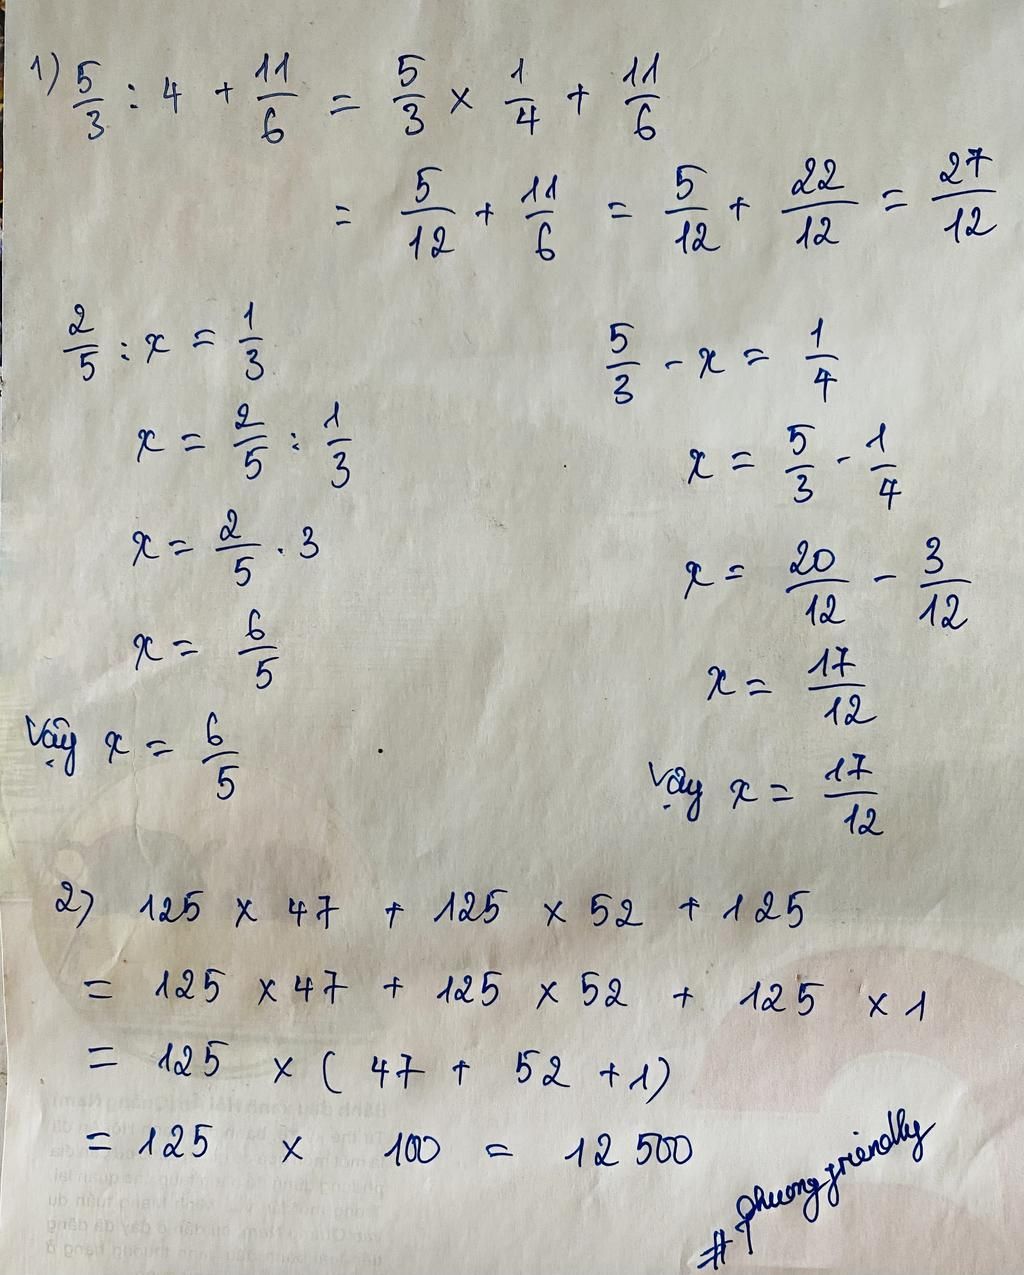 1) 5/3 : 4 + 11/6 = 5/3 × 1/4 + 11/6
= 5/12 + 11/6 = 5/12 + 22/12 = 27/12
2/5 : x = 1/3
x = 2/5 : 1/3
x = 2/5 . 3
x = 6/5
Vậy x = 6/5
5/3 - x = 1/4
x = 5/3 - 1/4
x = 20/12 - 3/12
x = 17/12
Vậy x = 17/12
2) 125 × 47 + 125 × 52 + 125
= 125 × 47 + 125 × 52 + 125 × 1
= 125 × ( 47 + 52 + 1)
= 125 × 100 = 12 500
# Phuongfriendlly